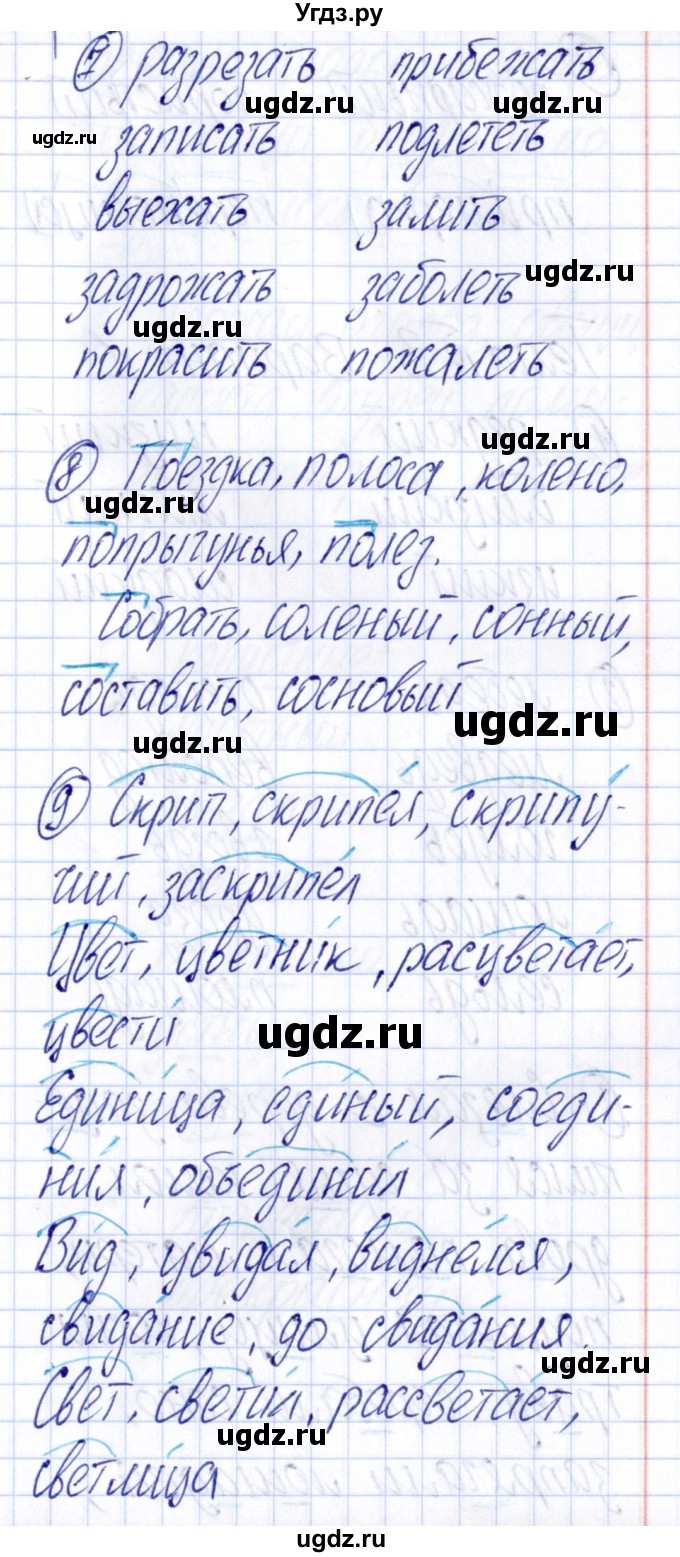 Угдз.ру
7 разрезать прибежать
ugdz.ru ugdz.ru
ugdz.ru записать подлететь
выехать залить
ugdz.ru
задрожать заболеть
ugdz.ru
покрасить пожалеть
ugdz.ru
8 Поездка, полоса, колено,
ugdz.ru
попрыгунья, полез.
Собрать, соленый, сонный,
составить, сосновый
ugdz.ru
ugdz.ru
9 Скрип, скрипе́л, скрипу́-
чий, заскрипе́л
Цвет, цветни́к, расцвета́ет,
ugdz.ru
цвести́
Едини́ца, единый, соеди-
ни́л, объедини́л
Ви́д, увида́л, видне́лся,
свида́ние, до свида́ния.
ugdz.ru
Свет, свети́л, рассвета́ет,
ugdz.ru
светли́ца
ugdz.ru